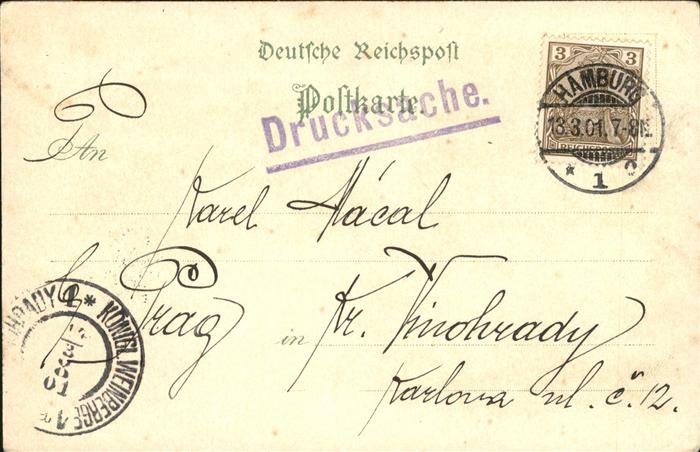 Deutsche Reichspost
Postkarte.
Drucksache.
3 3
REICHSPOST
HAMBURG
13.3.01. 7-8N.
* 1 c
An
Karel Mácal
Prag
in Kr. Vinohrady
Karlova ul. č. 12.
HRADY 1 * KÖNIGL. WEINBERGE 1
14
3
01